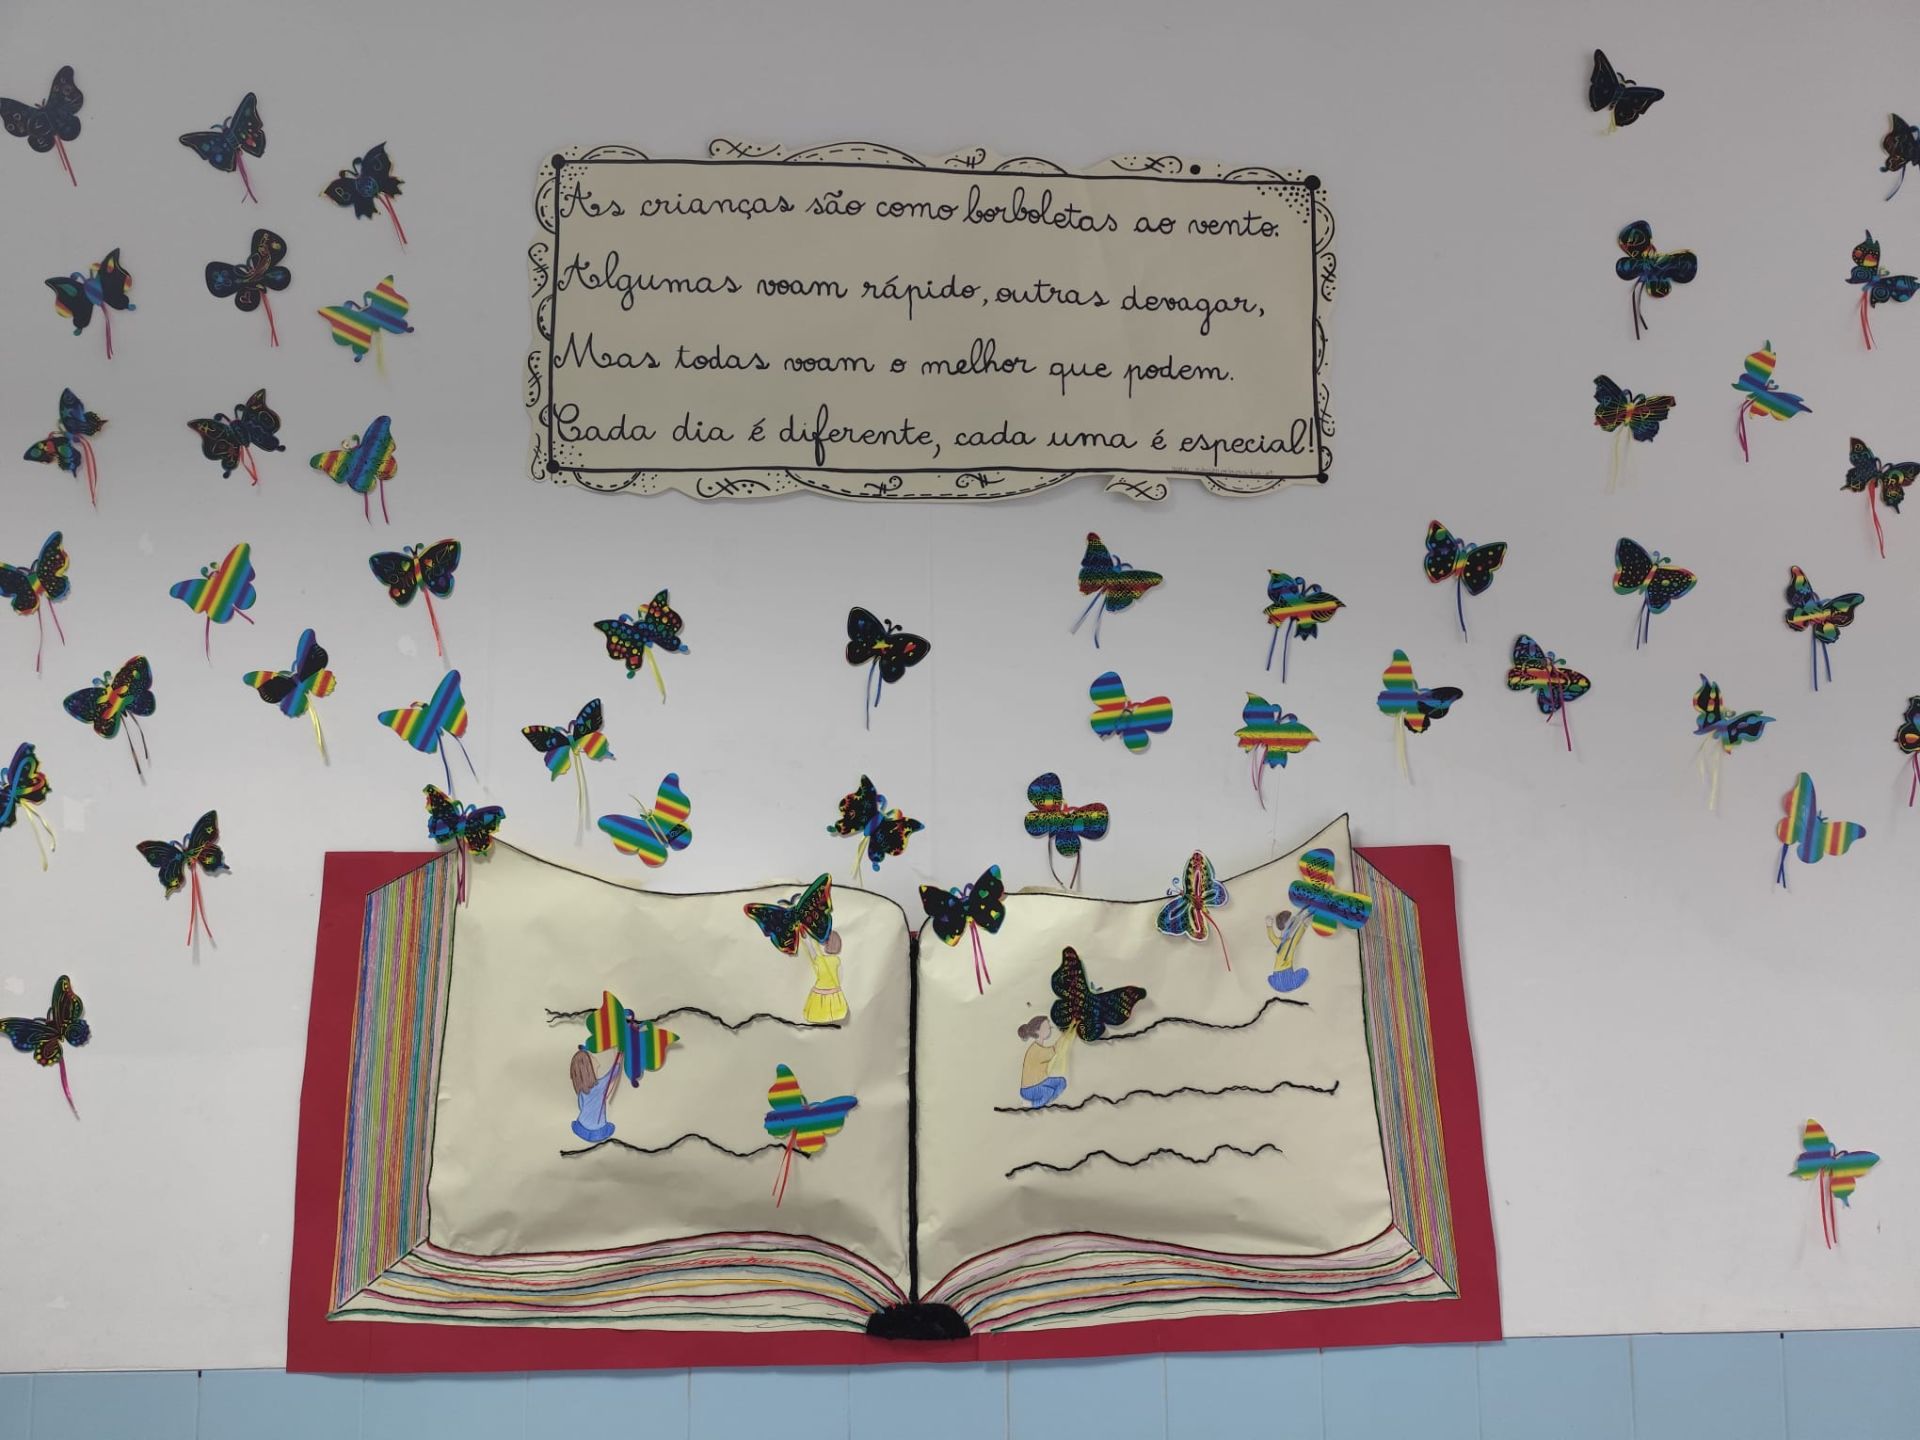 As crianças são como borboletas ao vento.
Algumas voam rápido, outras devagar,
Mas todas voam o melhor que podem.
Cada dia é diferente, cada uma é especial!